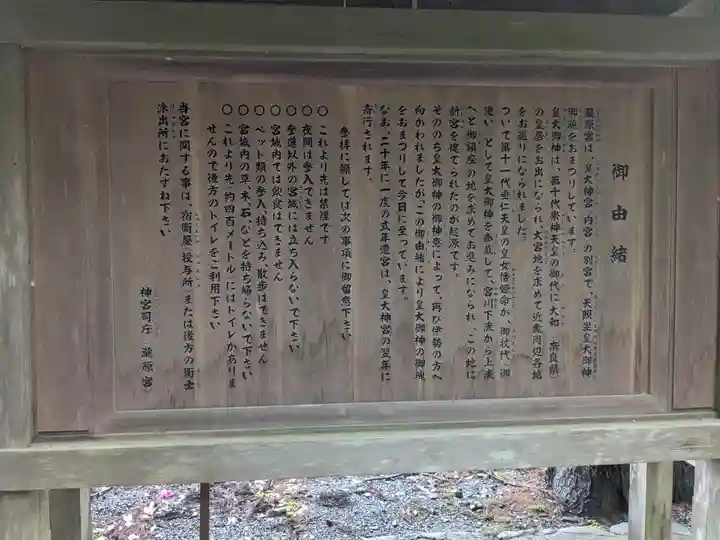 御由緒
瀧原宮は、皇大神宮(内宮)の別宮で、天照坐皇大御神
御魂をおまつりしています。
皇大御神は、第十代崇神天皇の御代に大和(奈良県)
の皇居をお出になられ、大宮地を求めて近畿周辺各地
をお巡りになられました。
ついで第十一代垂仁天皇の皇女倭姫命が、御杖代(御
使い)として皇大御神を奉戴して、宮川下流から上流
へと御鎮座の地を求めてお進みになられ、この地に
新宮を建てられたのが起源です。
そののち皇大御神の御神意によって、再び伊勢の方へ
向かわれましたが、この御由緒により皇大御神の御魂
をおまつりして今日に至っています。
なお、二十年に一度の式年遷宮は、皇大神宮の翌年に
斎行されます。
参拝に際しては次の事項に御留意下さい
○これより先は禁煙です
○夜間は参入できません
○参道以外の宮域には立ち入らないで下さい
○宮域内では飲食はできません
○ペット類の参入(持ち込み)散歩はできません
○宮域内の草、木、石、などを持ち帰らないで下さい
○これより先(約四百メートル)にはトイレがありま
せんので後方のトイレをご利用下さい
当宮に関する事は、宿衛屋(授与所)または後方の衛士
派出所におたずね下さい
神宮司庁(瀧原宮)